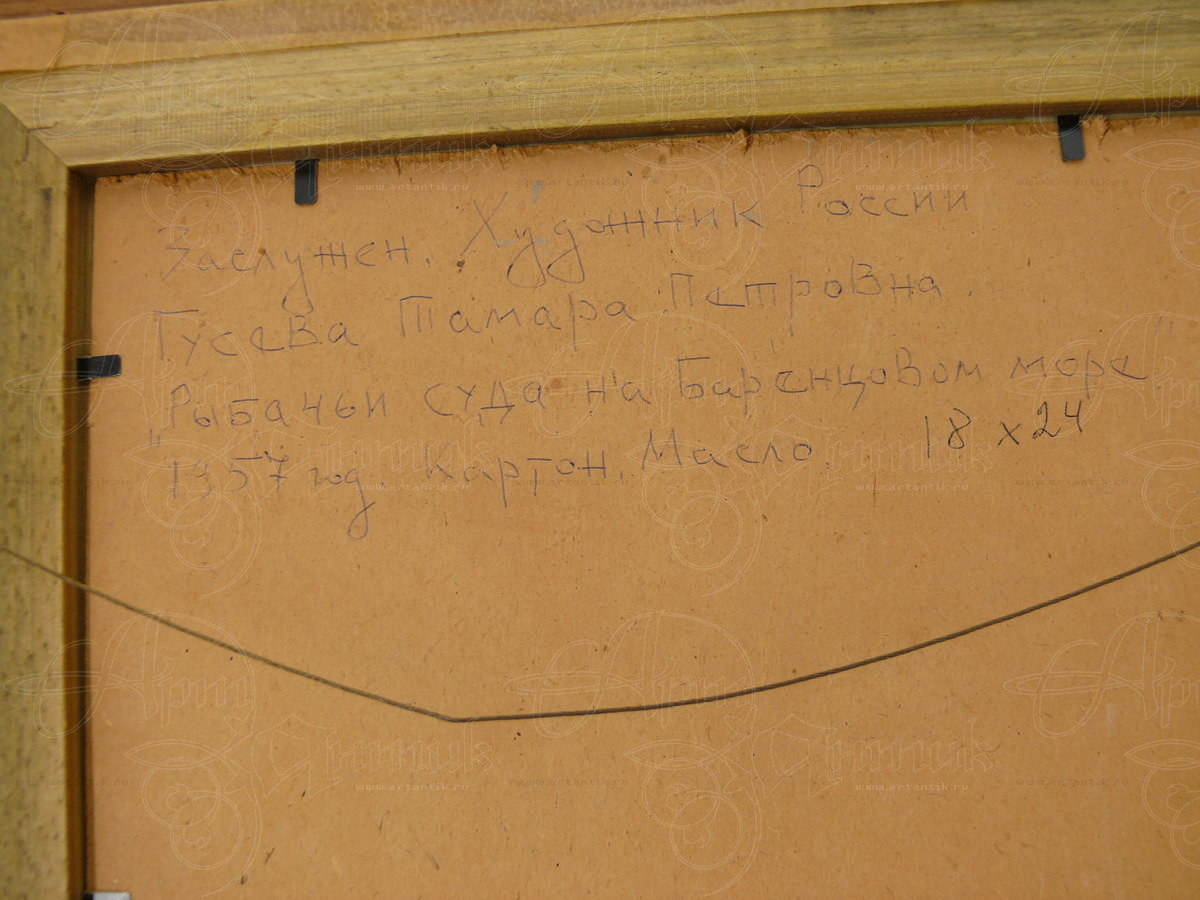 Заслужен. Художник России
Гусева Тамара Петровна.
„Рыбачьи суда на Баренцовом море"
1957 год. Картон. Масло. 18 x 24
Арт Антик
www.artantik.ru